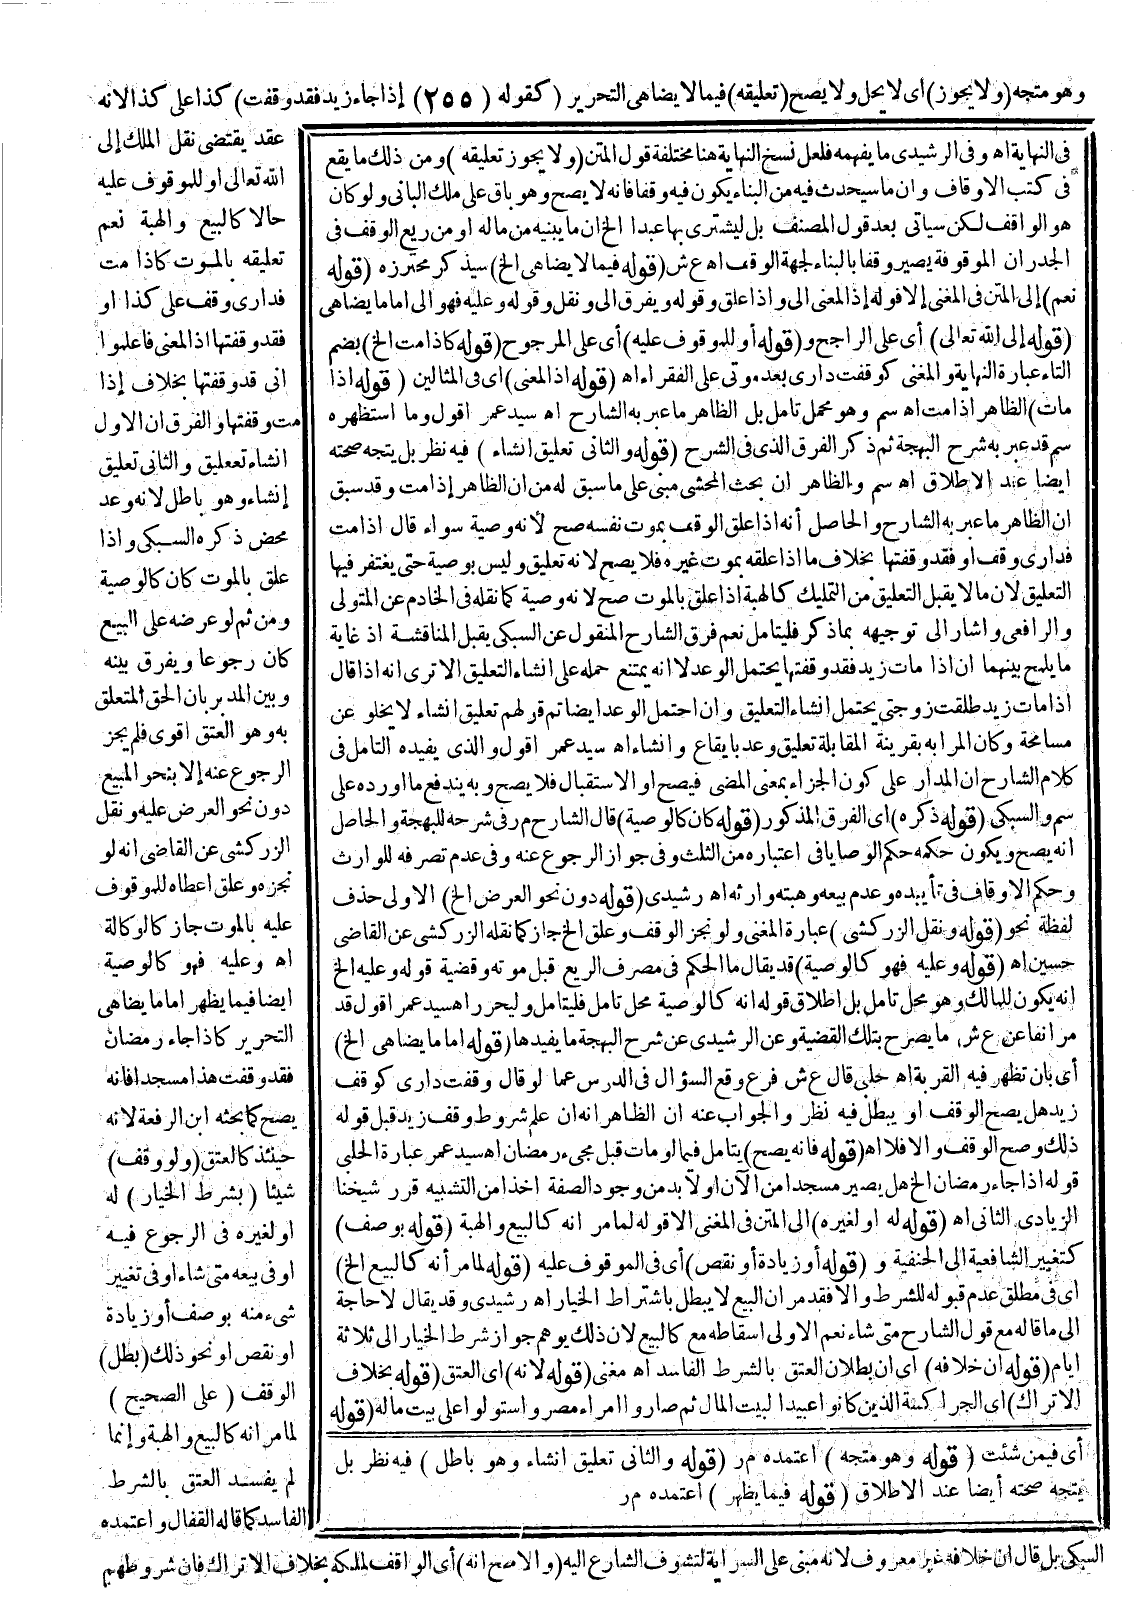 وهو متجه (ولا يجوز) أى لا يحل ولا يصح (تعليقه) فيما لا يضاهى التحرير (كقوله (٢٥٥) إذا جاء زيد فقد وقفت) كذا على كذا لانه
عقد يقتضى نقل الملك إلى
الله تعالى او للموقوف عليه
حالا كالبيع والهبة نعم
تعليقه بالموت كاذا مت
فدارى وقف على كذا او
فقد وقفتها اذ المعنى فاعلموا
انى قد وقفتها بخلاف إذا
مت وقفتها والفرق ان الاول
انشاء تعليق والثانى تعليق
إنشاء وهو باطل لانه وعد
محض ذكره السبكى واذا
علق بالموت كان كالوصية
ومن ثم لو عرضه على البيع
كان رجوعا ويفرق بينه
وبين المدبر بان الحق المتعلق
به وهو العتق اقوى فلم يجز
الرجوع عنه إلا بنحو البيع
دون نحو العرض عليه ونقل
الزركشى عن القاضى انه لو
نجزه وعلق اعطاه للموقوف
عليه بالموت جاز كالوكالة
اه وعليه فهو كالوصية
ايضا فيما يظهر اما ما يضاهى
التحرير كاذا جاء رمضان
فقد وقفت هذا مسجدا فانه
يصح كما بحثه ابن الرفعة لانه
حينئذ كالعتق (ولو وقف)
شيئا (بشرط الخيار) له
او لغيره فى الرجوع فيه
او فى بيعه متى شاء او فى تغيير
شىء منه بوصف أو زيادة
او نقص او نحو ذلك (بطل)
الوقف (على الصحيح)
لما مر انه كالبيع والهبة وإنما
لم يفسد العتق بالشرط
الفاسد كما قاله القفال واعتمده
السبكى بل قال ان خلافه غير معروف لانه مبنى على السراية لتشوف الشارع اليه (والاصح انه) أى الواقف لملكه بخلاف الاتراك فان شروطهم
فى النهاية اه وفى الرشيدى ما يفهمه فلعل نسخ النهاية هنا مختلفة قول المتن (ولا يجوز تعليقه) ومن ذلك ما يقع
فى كتب الاوقاف وان ما سيحدث فيه من البناء يكون فيه وقفا فانه لا يصح وهو باق على ملك البانى ولو كان
هو الواقف لكن سياتى بعد قول المصنف بل ليشترى بها عبدا الخ ان ما يبنيه من ماله او من ريع الوقف فى
الجدران الموقوفة يصير وقفا بالبناء لجهة الوقف اه ع ش (قوله فيما لا يضاهى الخ) سيذكر محترزه (قوله
نعم) إلى المتن فى المغنى إلا قوله إذ المعنى الى واذا علق وقوله ويفرق الى ونقل وقوله وعليه فهو الى اما ما يضاهى
(قوله إلى الله تعالى) أى على الراجح و(قوله أو للموقوف عليه) أى على المرجوح (قوله كاذا مت الخ) بضم
التاء عبارة النهاية والمغنى كوقفت دارى بعد موتى على الفقراء اه (قوله اذ المعنى) اى فى المثالين (قوله اذا
مات) الظاهر اذا مت اه سم وهو محمل تامل بل الظاهر ما عبر به الشارح اه سيد عمر اقول وما استظهره
سم قد عبر به شرح البهجة ثم ذكر الفرق الذى فى الشرح (قوله والثانى تعليق انشاء) فيه نظر بل يتجه صحته
ايضا عند الاطلاق اه سم والظاهر ان بحث المحشى مبنى على ما سبق له من ان الظاهر إذا مت وقد سبق
ان الظاهر ما عبر به الشارح والحاصل أنه اذا علق الوقف بموت نفسه صح لأنه وصية سواء قال اذا مت
فدارى وقف او فقد وقفتها بخلاف ما اذا علقه بموت غيره فلا يصح لانه تعليق وليس بوصية حتى يغتفر فيها
التعليق لان ما لا يقبل التعليق من التمليك كالهبة اذا علق بالموت صح لانه وصية كما نقله فى الخادم عن المتولى
والرافعى واشار الى توجيهه بما ذكر فليتامل نعم فرق الشارح المنقول عن السبكى يقبل المناقشة اذ غاية
ما يليح بينهما ان اذا مات زيد فقد وقفتها يحتمل الوعد لا انه يمتنع حمله على انشاء التعليق الا ترى انه اذا قال
اذا مات زيد طلقت زوجتى يحتمل انشاء التعليق وان احتمل الوعد ايضا ثم قولهم تعليق انشاء لا يخلو عن
مسامحة وكان المراد به بقرينة المقابلة تعليق وعد بايقاع وانشاء اه سيد عمر اقول والذى يفيده التامل فى
كلام الشارح ان المدار على كون الجزاء بمعنى المضى فيصح او الاستقبال فلا يصح وبه يندفع ما اورده على
سم والسبكى (قوله ذكره) اى الفرق المذكور (قوله كان كالوصية) قال الشارح م ر فى شرحه للبهجة والحاصل
انه يصح ويكون حكمه حكم الوصايا فى اعتباره من الثلث وفى جواز الرجوع عنه وفى عدم تصرفه للوارث
وحكم الاوقاف فى تأبيده وعدم بيعه وهبته وارثه اه رشيدى (قوله دون نحو العرض الخ) الاولى حذف
لفظة نحو (قوله ونقل الزركشى) عبارة المغنى ولو نجز الوقف وعلق الخ جاز كما نقله الزركشى عن القاضى
حسين اه (قوله وعليه فهو كالوصية) قد يقال ما الحكم فى مصرف الريع قبل موته وقضية قوله وعليه الخ
انه يكون للمالك وهو محل تامل بل اطلاق قوله انه كالوصية محل تامل فليتامل وليحرر اه سيد عمر اقول قد
مر انفا عن ع ش ما يصرح بتلك القضية وعن الرشيدى عن شرح البهجة ما يفيدها (قوله اما ما يضاهى الخ)
أى بان تظهر فيه القربة اه حلبى قال ع ش فرع وقع السؤال فى الدرس عما لو قال وقفت دارى كوقف
زيد هل يصح الوقف او يبطل فيه نظر والجواب عنه ان الظاهر انه ان علم شروط وقف زيد قبل قوله
ذلك وصح الوقف والا فلا اه (قوله فانه يصح) يتامل فيما لو مات قبل مجىء رمضان اه سيد عمر عبارة الحلبى
قوله اذا جاء رمضان الخ هل يصير مسجدا من الآن او لا بد من وجود الصفة اخذا من التشبيه قرر شيخنا
الزيادى الثانى اه (قوله له او لغيره) الى المتن فى المغنى الا قوله لما مر انه كالبيع والهبة (قوله بوصف)
كتغيير الشافعية الى الحنفية و (قوله أو زيادة أو نقص) أى فى الموقوف عليه (قوله لما مر أنه كالبيع الخ)
اى فى مطلق عدم قبوله للشرط والا فقد مر ان البيع لا يبطل باشتراط الخيار اه رشيدى وقد يقال لا حاجة
الى ما قاله مع قول الشارح متى شاء نعم الاولى اسقاطه مع كالبيع لان ذلك يوهم جواز شرط الخيار الى ثلاثة
ايام (قوله ان خلافه) اى ان بطلان العتق بالشرط الفاسد اه مغنى (قوله لانه) اى العتق (قوله بخلاف
الاتراك) اى الجراكسة الذين كانوا عبيدا لبيت المال ثم صاروا امراء مصر واستولوا على بيت ماله (قوله
أى فيمن شئت (قوله وهو متجه) اعتمده م ر (قوله والثانى تعليق انشاء وهو باطل) فيه نظر بل
يتجه صحته أيضا عند الاطلاق (قوله فيما يظهر) اعتمده م ر